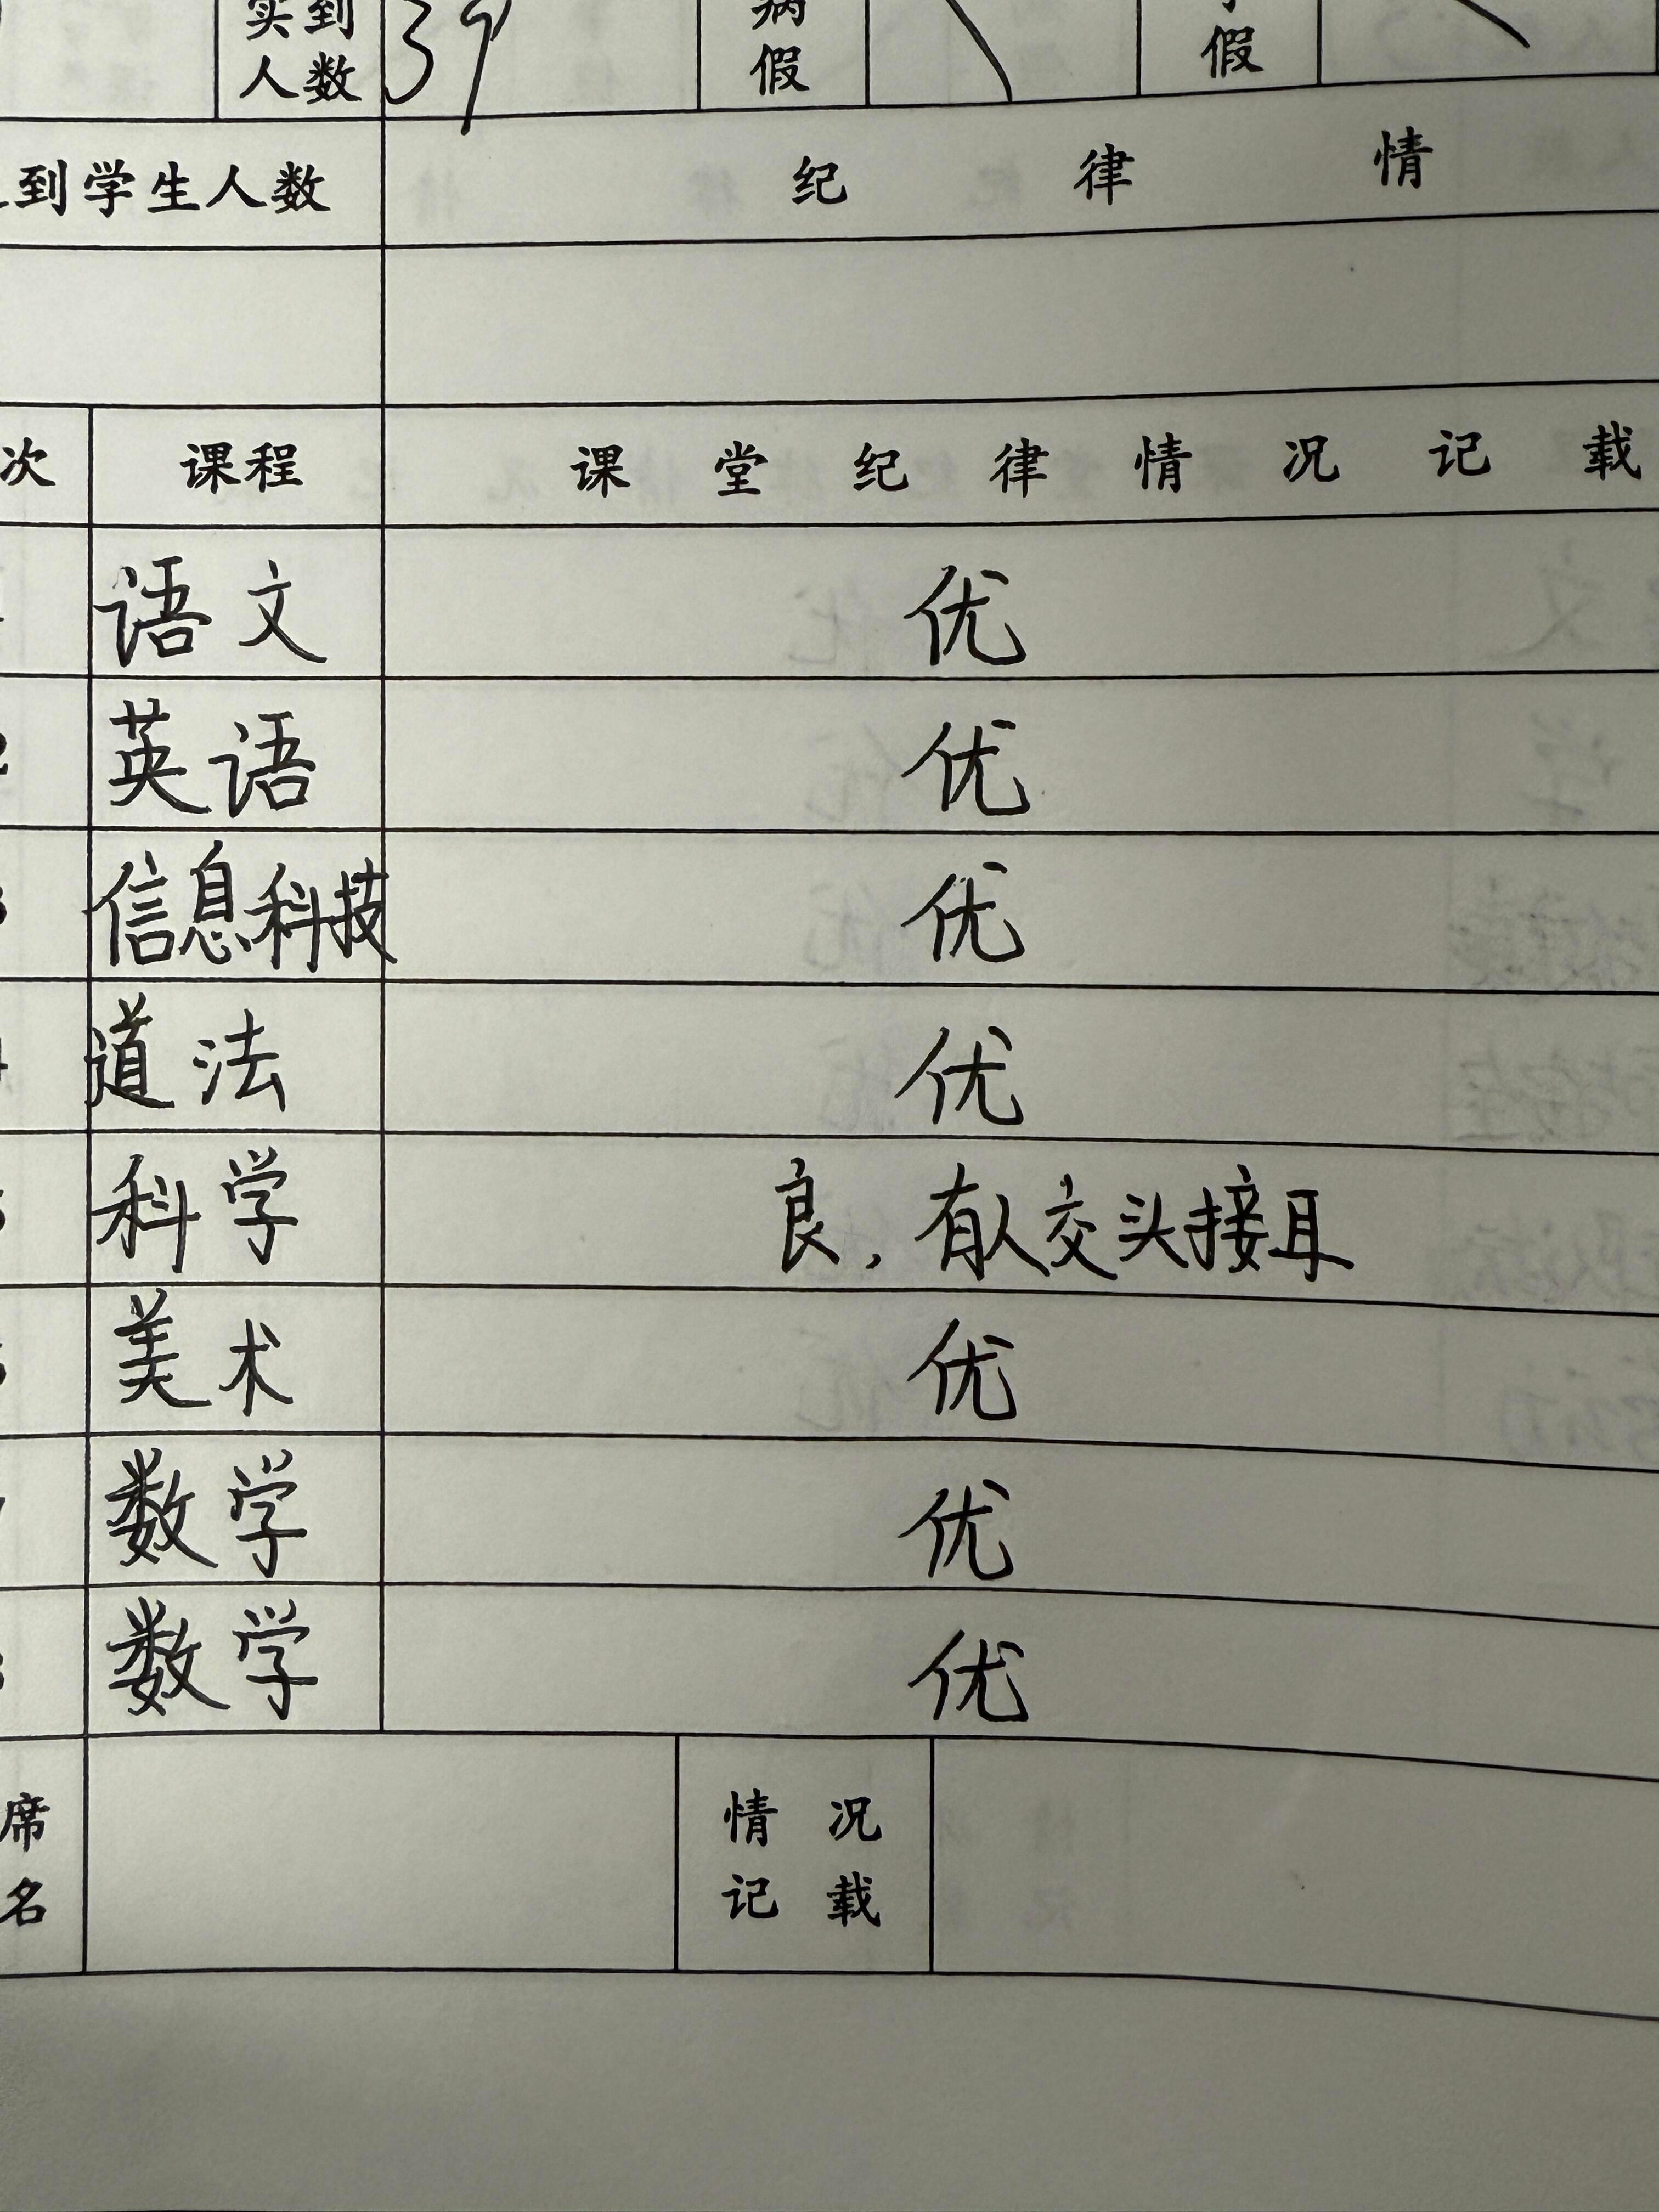 实到 39 病
人数 假 假
到学生人数 纪律情
次 课程 课堂纪律情况记载
语文 优
2 英语 优
信息科技 优
道法 优
科学 良，有人交头接耳
美术 优
数学 优
数学 优
席 情况
名 记载